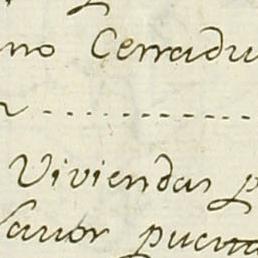 no Cerradu
Viviendas p
favor puerta